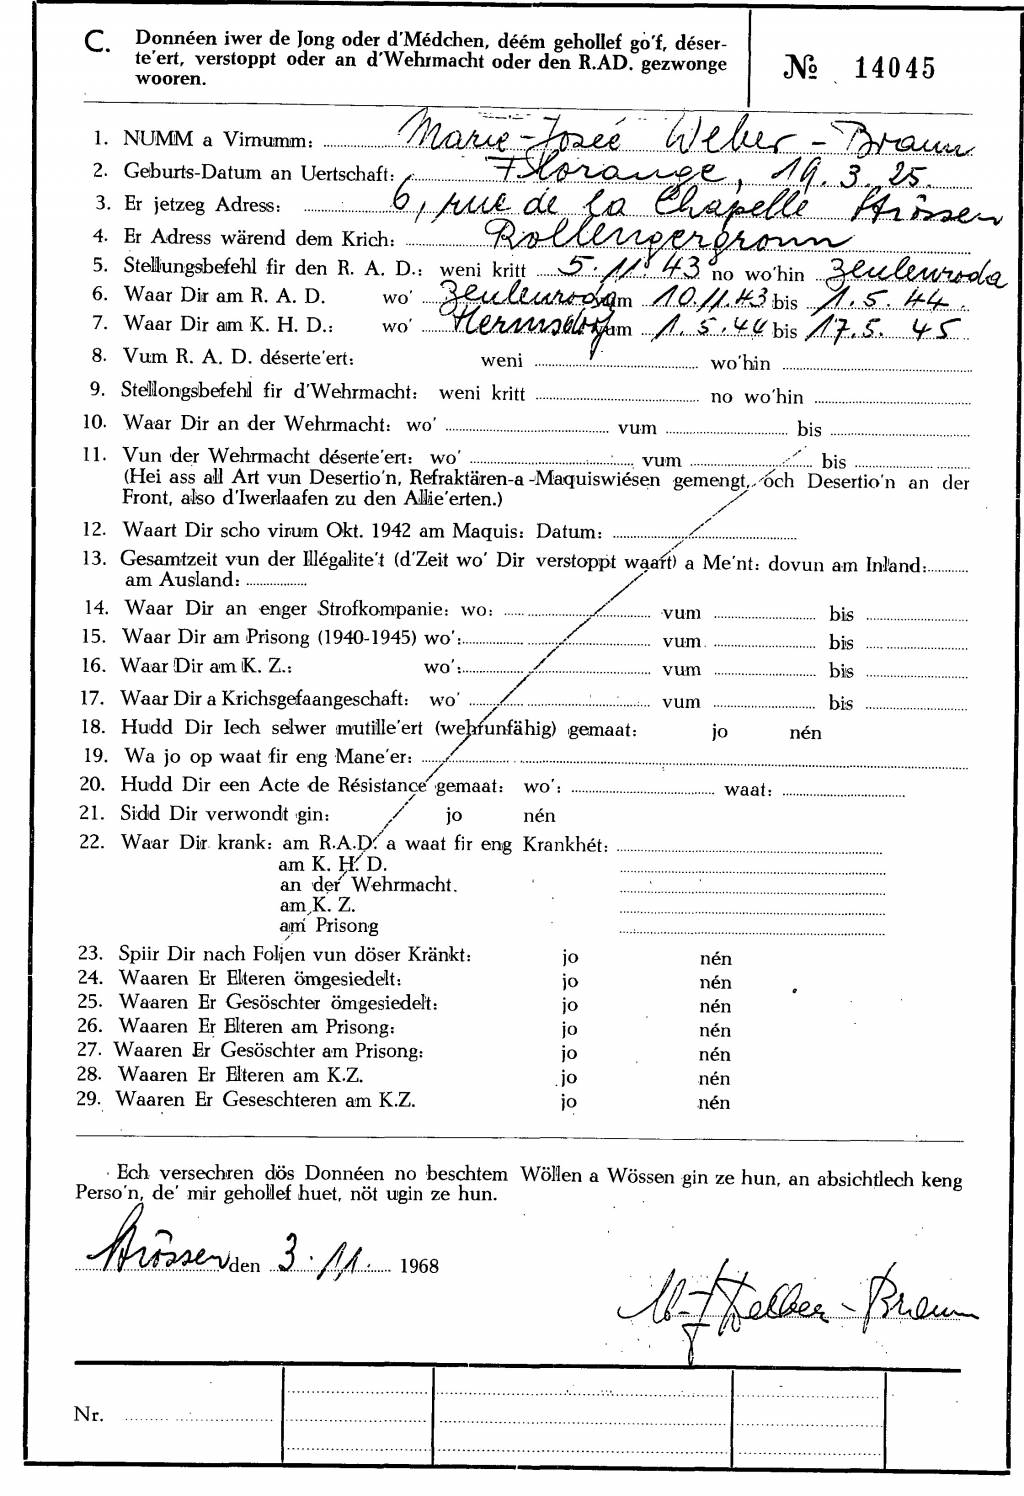 C. Donnéen iwer de Jong oder d'Médchen, déém gehollef go'f, déser-
te'ert, verstoppt oder an d'Wehrmacht oder den R.AD. gezwonge
wooren.
№ 14045
1. NUMM a Virnumm: Marie-Josée Weber-Braun
2. Geburts-Datum an Uertschaft: Florange, 19.3.25.
3. Er jetzeg Adress: 6, rue de la Chapelle Strössen
4. Er Adress wärend dem Krich: Rollengergronn
5. Stellungsbefehl fir den R. A. D.: weni kritt 5.11.43 no wo'hin Zeulenroda
6. Waar Dir am R. A. D. wo' Zeulenroda vum 10.11.43 bis 1.5.44.
7. Waar Dir am K. H. D.: wo' Hermsdorf vum 1.5.44 bis 17.5.45
8. Vum R. A. D. déserte'ert: weni wo'hin
9. Stellongsbefehl fir d'Wehrmacht: weni kritt no wo'hin
10. Waar Dir an der Wehrmacht: wo' vum bis
11. Vun der Wehrmacht déserte'ert: wo' vum bis
(Hei ass all Art vun Desertio'n, Refraktären-a -Maquiswiésen gemengt, och Desertio'n an der
Front, also d'Iwerlaafen zu den Allie'erten.)
12. Waart Dir scho virum Okt. 1942 am Maquis: Datum:
13. Gesamtzeit vun der Illégalite't (d'Zeit wo' Dir verstoppt waart) a Me'nt: dovun am Inland:
am Ausland:
14. Waar Dir an enger Strofkompanie: wo: vum bis
15. Waar Dir am Prisong (1940-1945) wo': vum bis
16. Waar Dir am K. Z.: wo': vum bis
17. Waar Dir a Krichsgefaangeschaft: wo' vum bis
18. Hudd Dir Iech selwer mutille'ert (wehrunfähig) gemaat: jo nén
19. Wa jo op waat fir eng Mane'er:
20. Hudd Dir een Acte de Résistance gemaat: wo': waat:
21. Sidd Dir verwondt gin: jo nén
22. Waar Dir krank: am R.A.D. a waat fir eng Krankhét:
am K. H. D.
an der Wehrmacht.
am K. Z.
am Prisong
23. Spiir Dir nach Foljen vun döser Kränkt: jo nén
24. Waaren Er Elteren ömgesiedelt: jo nén
25. Waaren Er Gesöschter ömgesiedelt: jo nén
26. Waaren Er Elteren am Prisong: jo nén
27. Waaren Er Gesöschter am Prisong: jo nén
28. Waaren Er Elteren am K.Z. jo nén
29. Waaren Er Geseschteren am K.Z. jo nén
Ech versechren dös Donnéen no beschtem Wöllen a Wössen gin ze hun, an absichtlech keng
Perso'n, de' mir gehollef huet, nöt ugin ze hun.
Strössen den 3.11. 1968
M-J Weber-Braun
Nr.